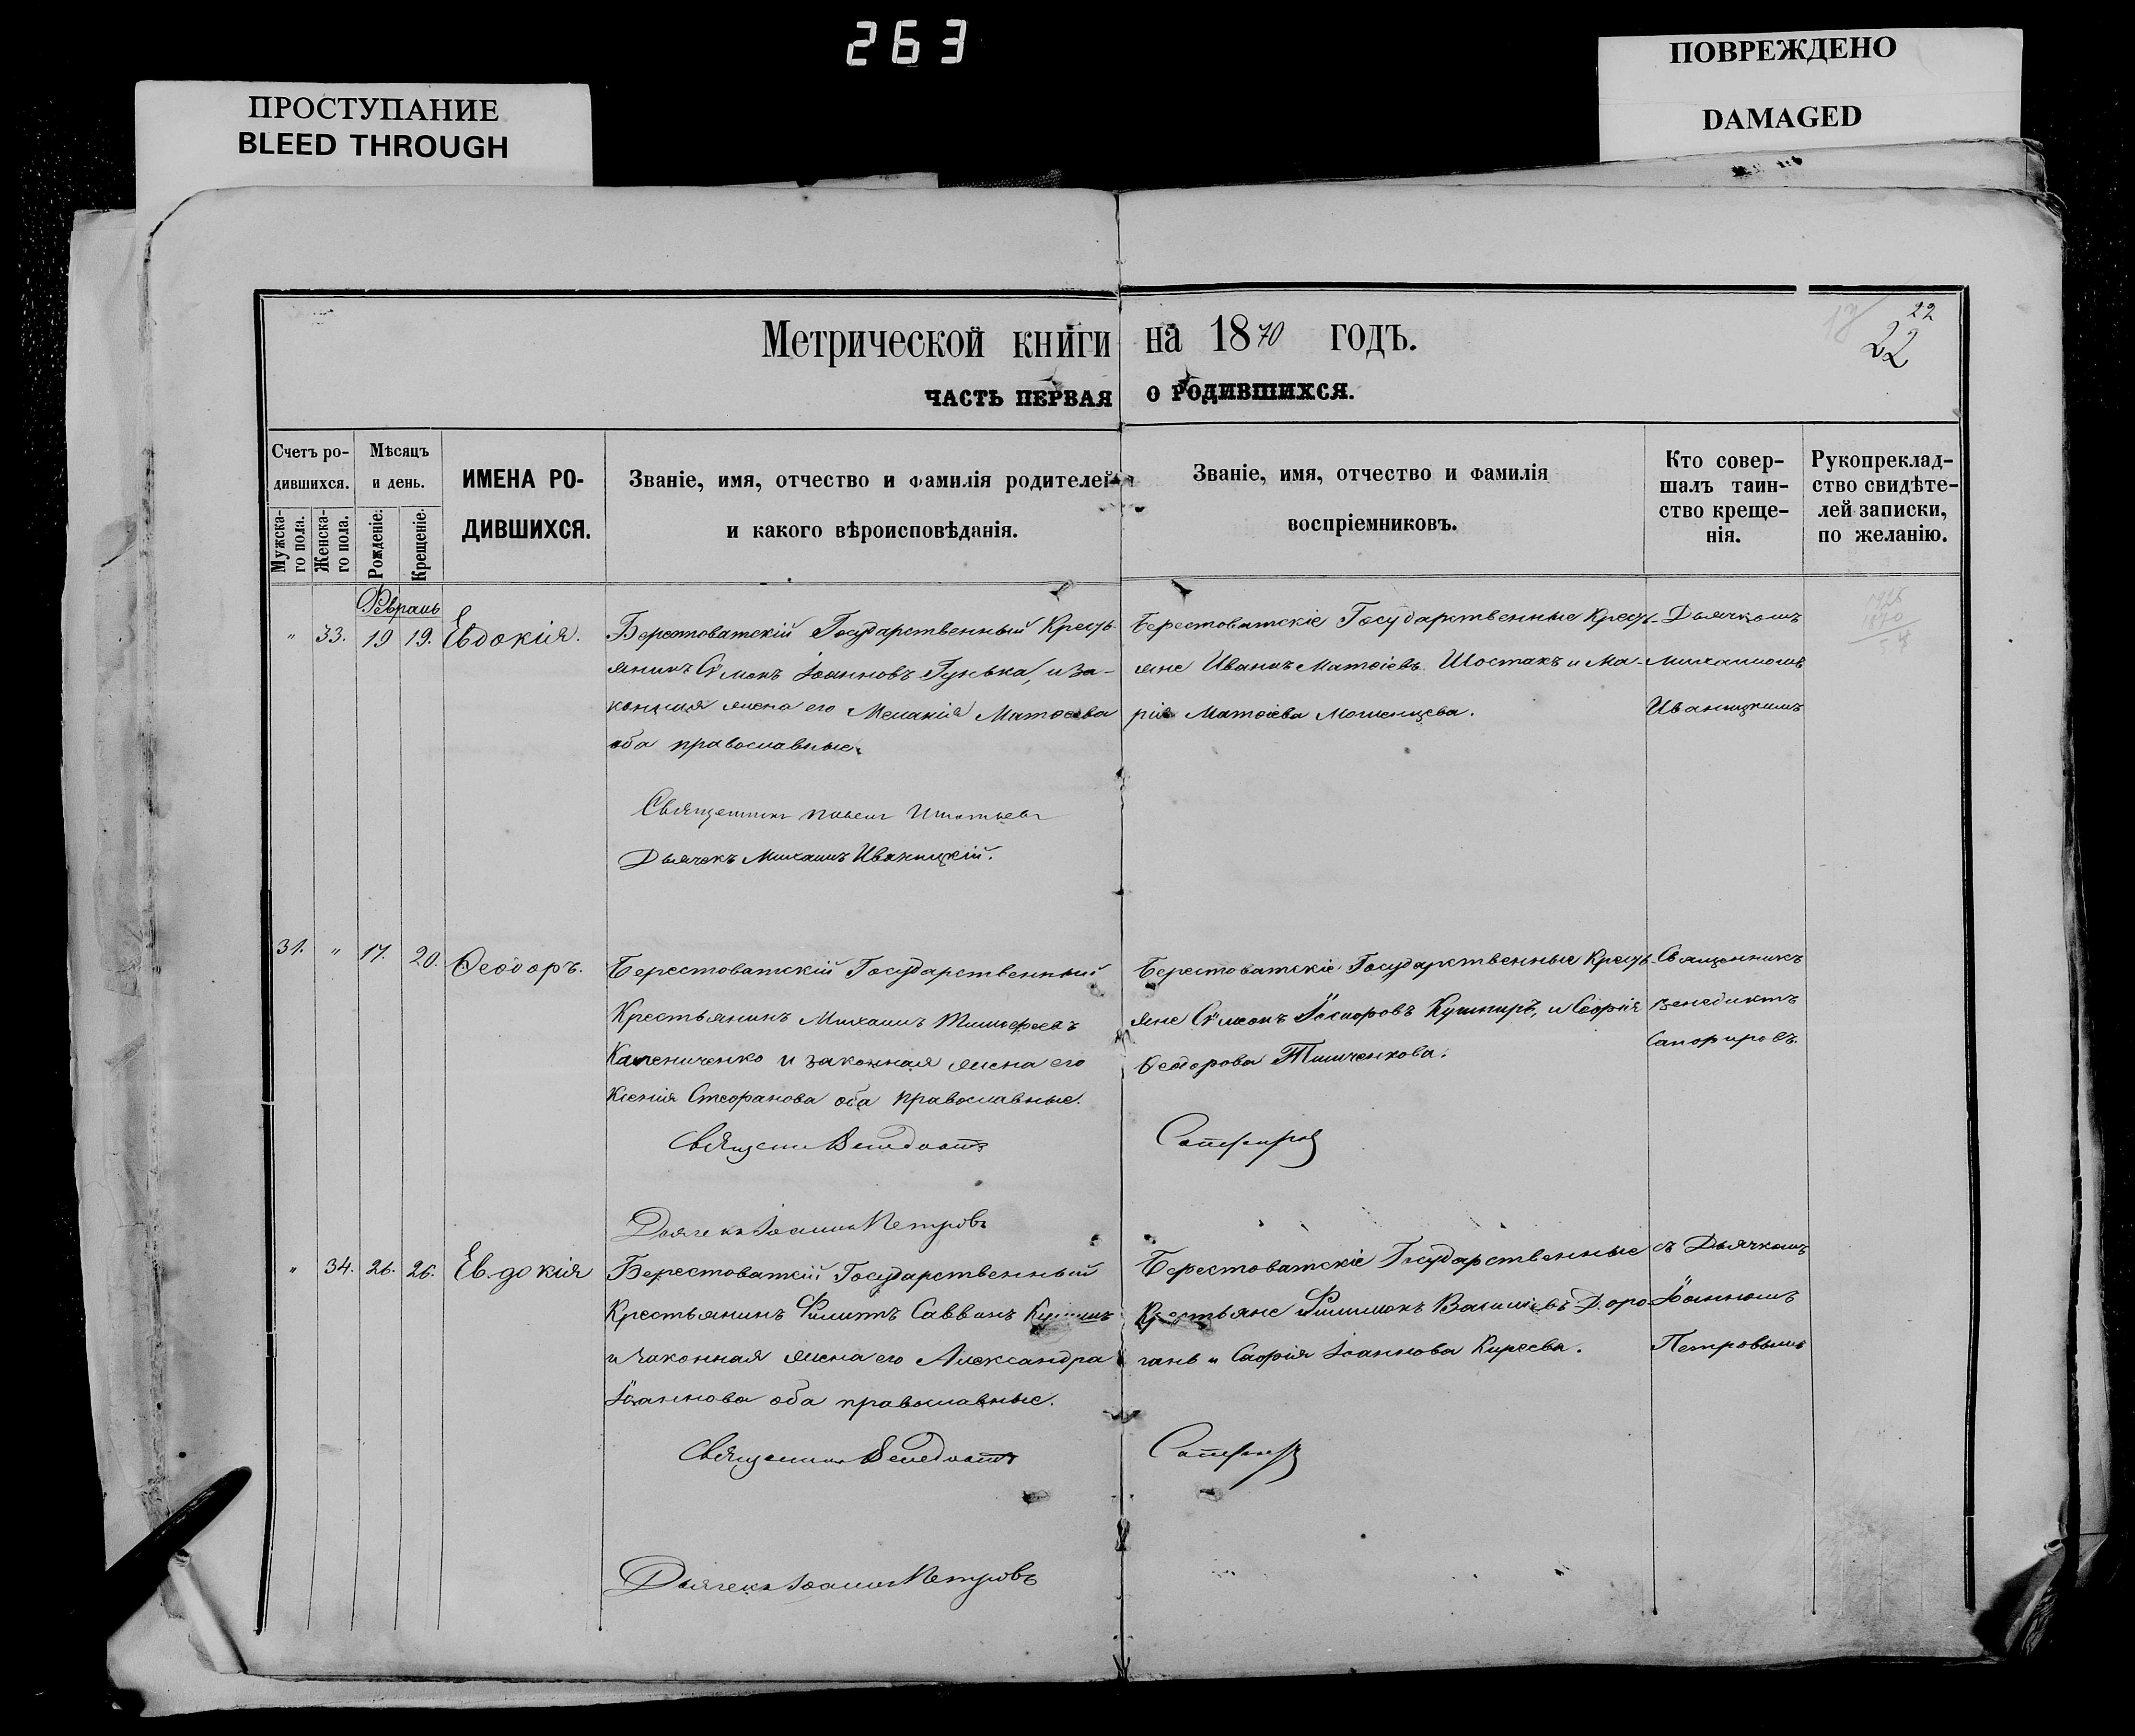 263
ПРОСТУПАНИЕ
BLEED THROUGH
ПОВРЕЖДЕНО
DAMAGED
22
22
Метрической книги на 1870 годъ.
ЧАСТЬ ПЕРВАЯ О РОДИВШИХСЯ.
Счетъ ро-
дившихся.
Мужска-
го пола.
Женска-
го пола.
Мѣсяцъ
и день.
Рожденіе.
Крещеніе.
ИМЕНА РО-
ДИВШИХСЯ.
Званіе, имя, отчество и фамилія родителей
и какого вѣроисповѣданія.
Званіе, имя, отчество и фамилія
воспріемниковъ.
Кто совер-
шалъ таин-
ство креще-
нія.
Рукопреклад-
ство свидѣте-
лей записки,
по желанію.
Февраль
" 33. 19 19. Евдокія.
Берестоватскій Государственный Кресть-
янинъ Сѵмонъ Іоанновъ Гунька, и за-
конная жена его Меланія Матѳеева
оба православные.
Священникъ Павелъ Игнатьевъ
Дьячекъ Михаилъ Иваницкій.
Берестоватскіе Государственные Кресть-
яне Иванъ Матѳіевъ Шостакъ и Ма-
рія Матѳіева Мошенцева.
Дьячкомъ
Михаиломъ
Иваницкимъ
31. " 17. 20. Ѳеодоръ.
Берестоватскій Государственный
Крестьянинъ Михаилъ Тимоѳеевъ
Калениченко и законная жена его
Ксенія Стефанова оба православные.
Священ Венедиктъ Сапфировъ
Дьячекъ Іоаннъ Петровъ
Берестоватскіе Государственные Кресть-
яне Сѵмеонъ Кушниръ, и Софія
Ѳеодорова Тимченкова.
Священникъ
Венедиктъ
Сапфировъ.
" 34. 26. 26. Евдокія
Берестоватскій Государственный
Крестьянинъ Филиппъ Саввинъ
и законная жена его Александра
Іоаннова оба православные.
Священникъ Венедиктъ Сапфировъ
Дьячекъ Іоаннъ Петровъ
Берестоватскіе Государственные
Крестьяне Филимонъ Василіевъ Доро-
гань и Софія Іоаннова Киреева.
съ Дьячкомъ
Іоанномъ
Петровымъ